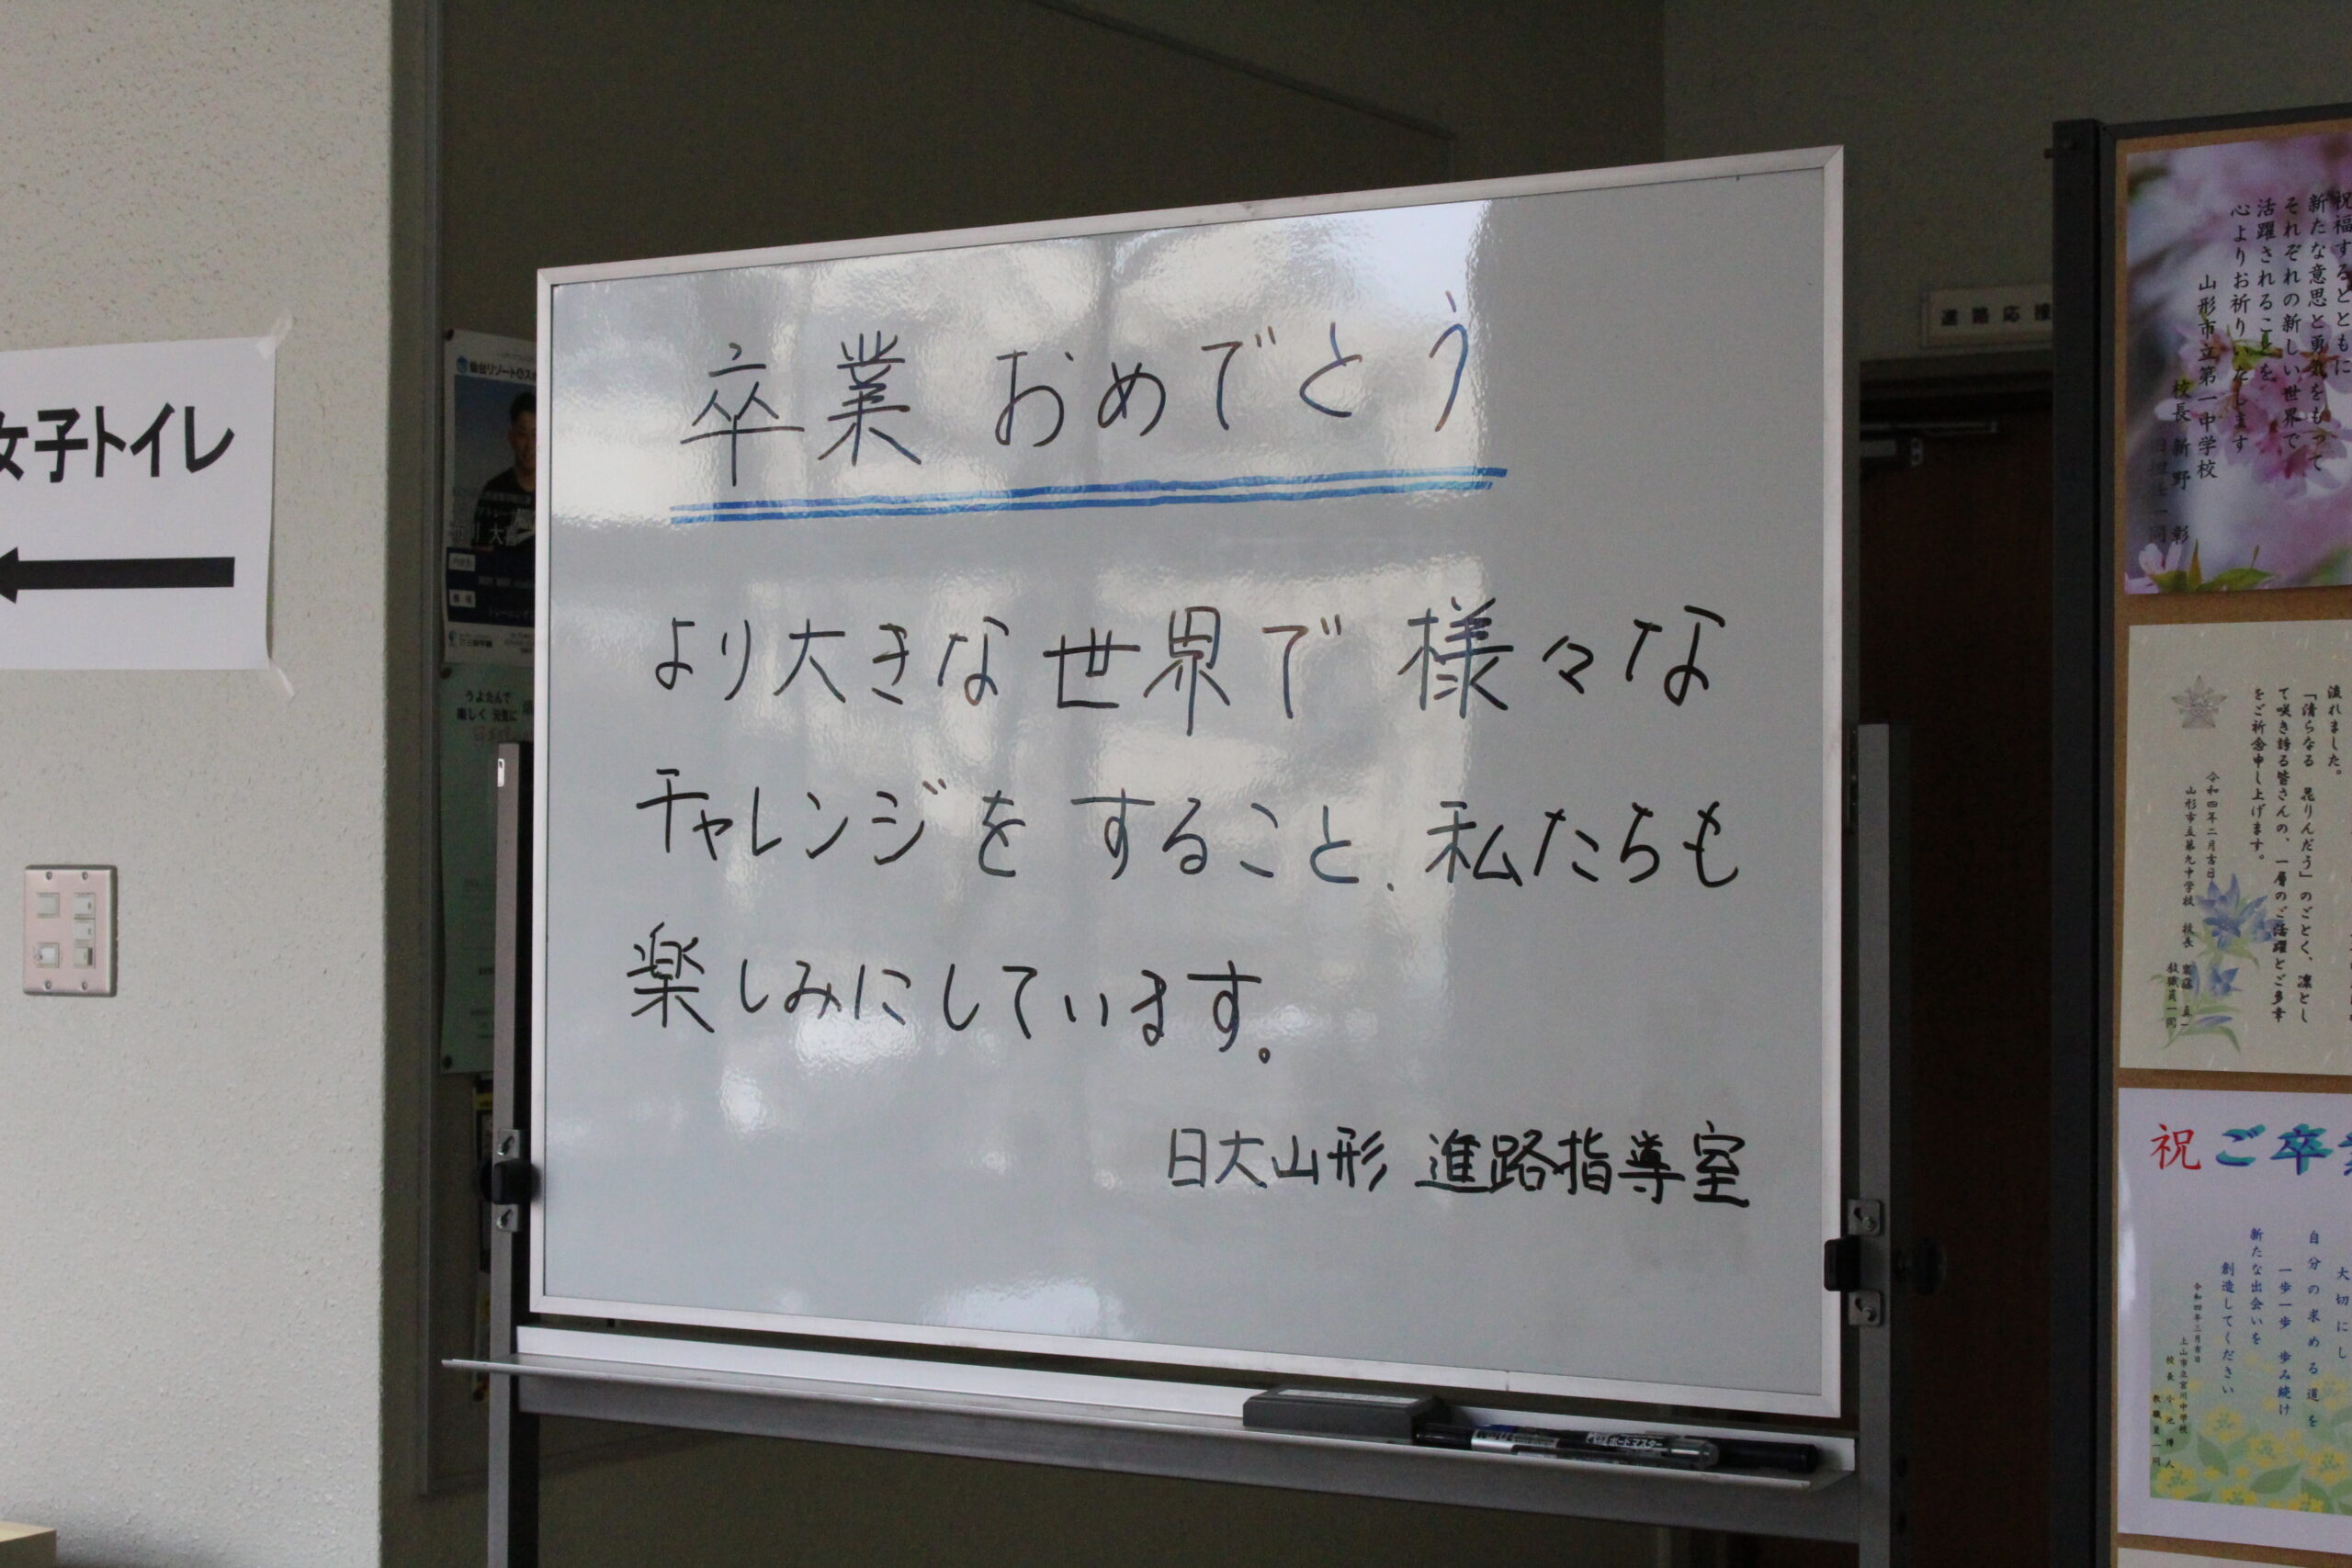 女子トイレ
卒業おめでとう
より大きな世界で様々な
チャレンジをすること、私たちも
楽しみにしています。
日大山形 進路指導室
進路応接
仙台リゾート&ス
うよたんで
楽しく元気に
ボードマスター
祝福するとともに
新たな意思と勇気をもって
それぞれの新しい世界で
活躍されることを
心よりお祈りいたします
山形市立第一中学校
校長 新野 彰
流れました。
「清らなる 昆りんだう」のごとく、凛とし
て咲き誇る皆さんの、一層のご活躍とご多幸
をご祈念申し上げます。
令和四年二月吉日
山形市立第九中学校 校長
教職員一同
祝 ご卒業
大切にし
自分の求める道を
一歩一歩 歩み続け
新たな出会いを
創造してください
令和四年三月吉日
上山市立宮川中学校
校長 小池 博人
教職員一同